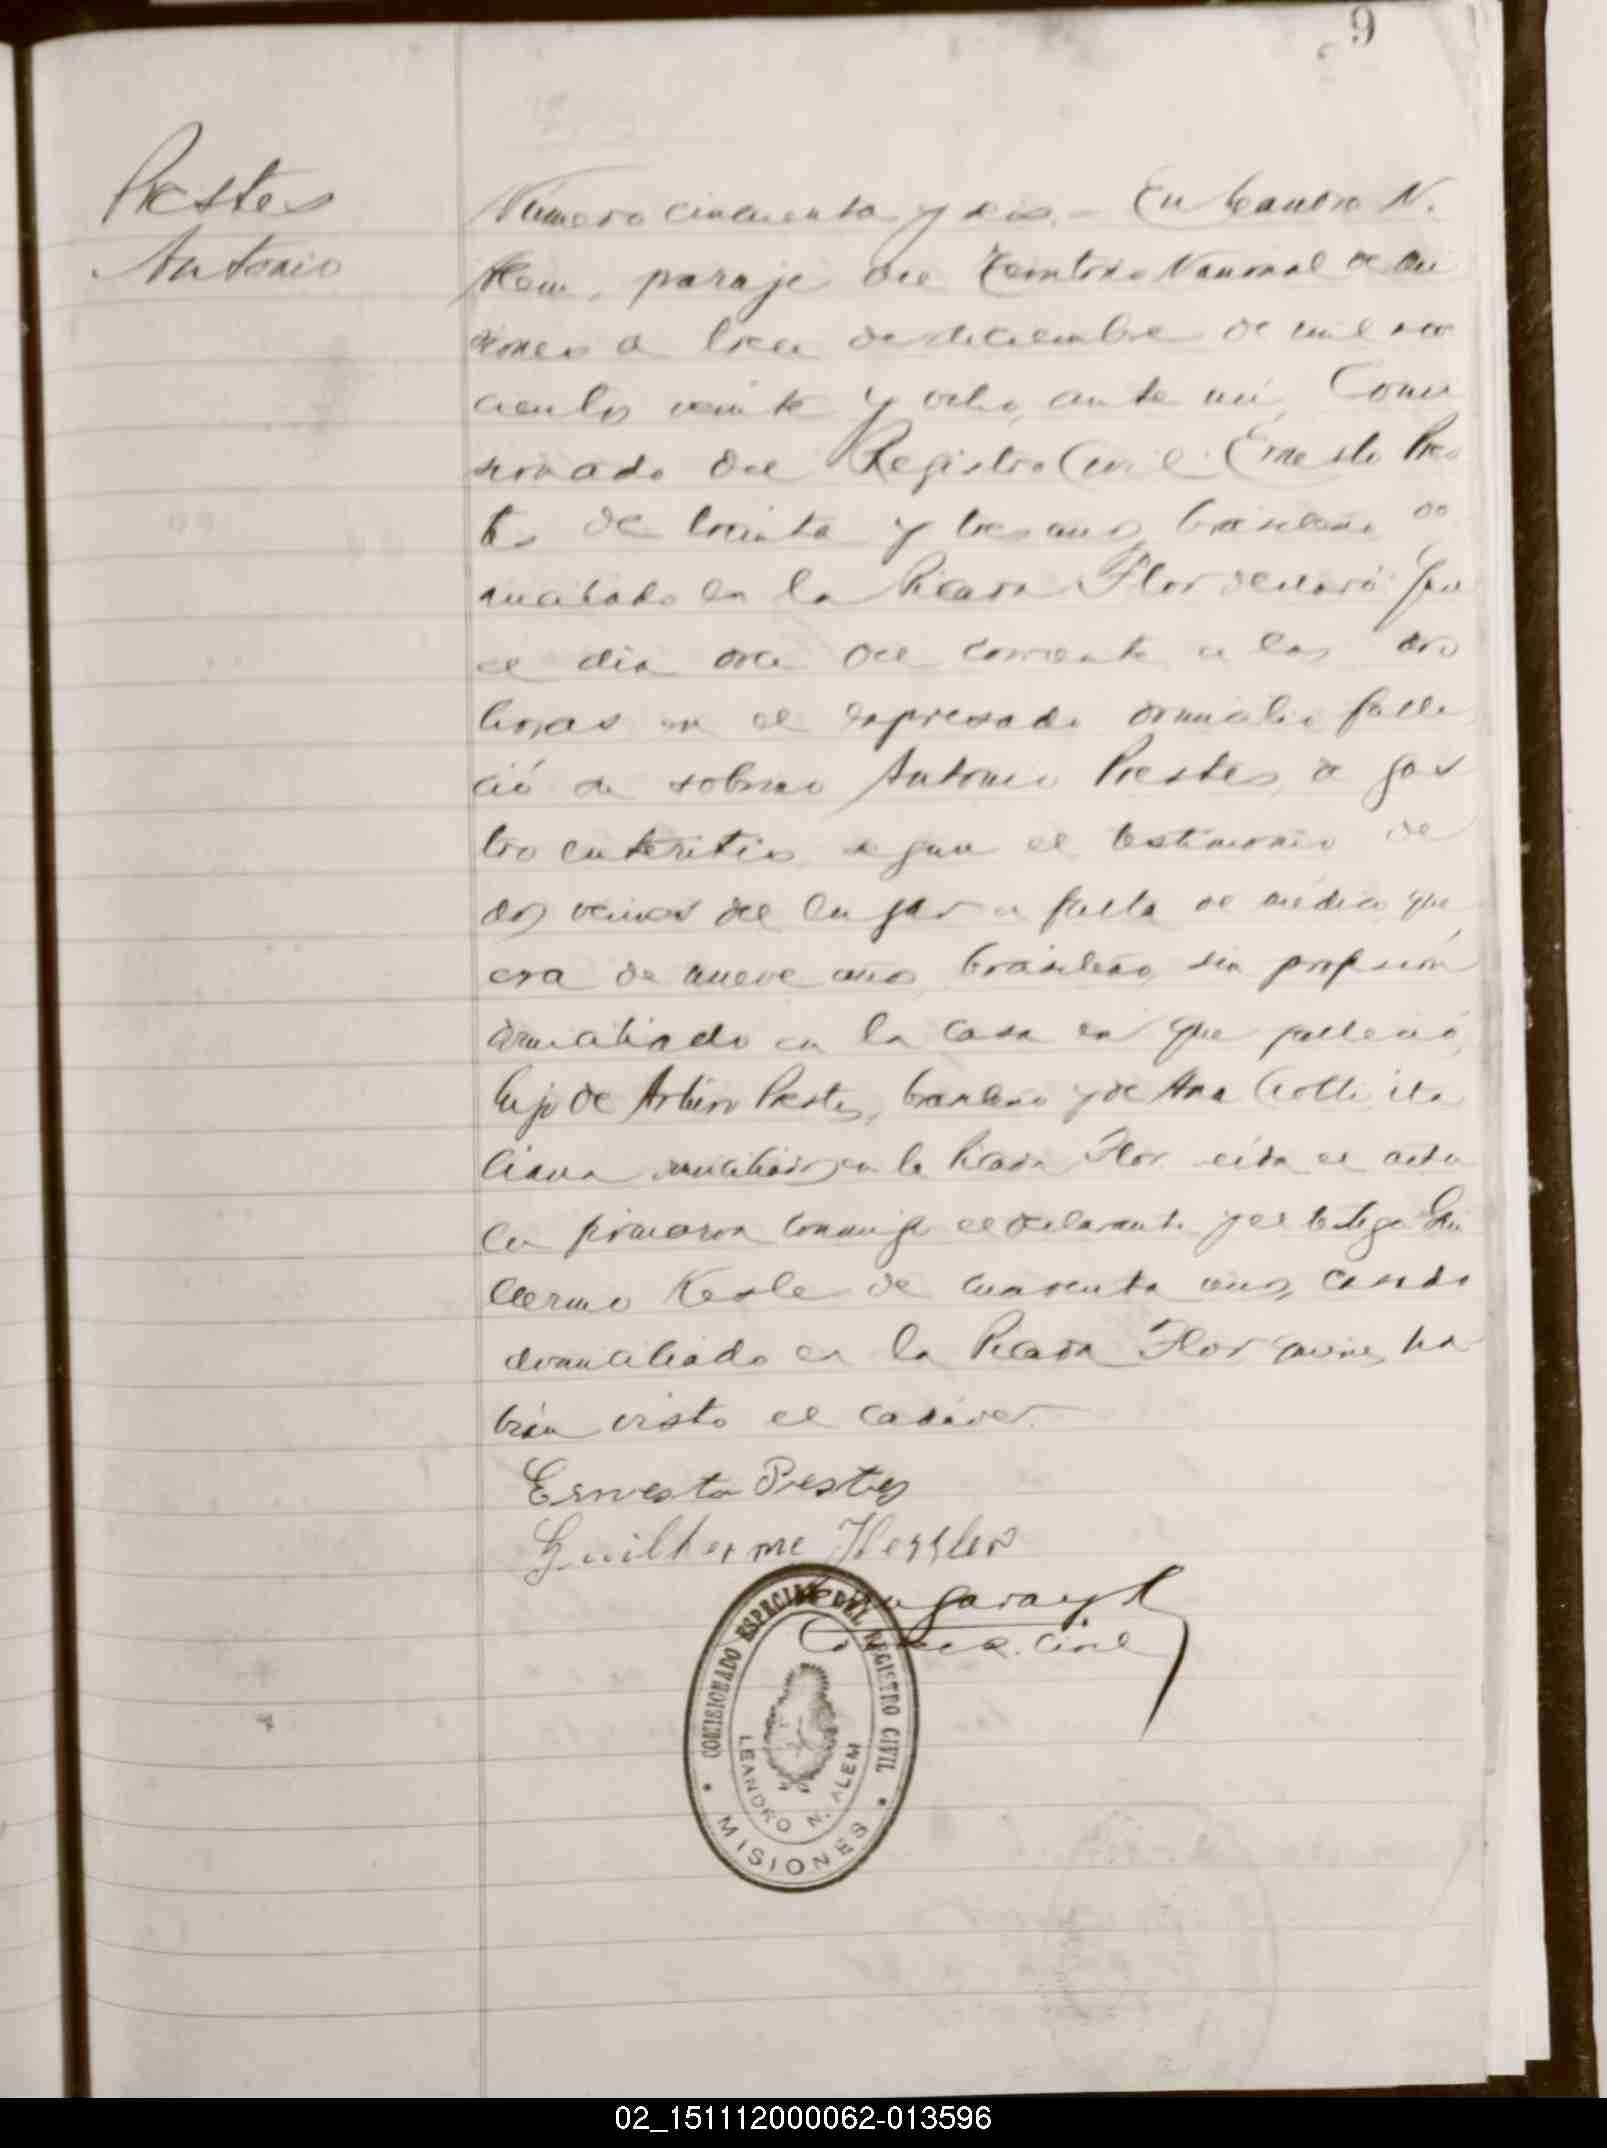 9
Prestes
Antonio
Número cincuenta y seis. - En Leandro N.
Alem, paraje del Territorio Nacional de Mi
siones a trece de diciembre de mil nove
cientos veinte y ocho, ante mí, Comi
sionado del Registro Civil Ernesto Pres
tes de treinta y tres años, brasileño do
miciliado en la Picada Flor declaró que
el día once del corriente a las dos
horas en el expresado domicilio falle
ció su sobrino Antonio Prestes, de gas
tro enteritis, segun el testimonio de
dos vecinos del lugar a falta de médico que
era de nueve años, brasileño, sin profesión
domiciliado en la casa en que falleció,
hijo de Arturo Prestes, brasileño y de Ana ita
liana domiciliados en la Picada Flor. Leída el acta
la firmaron conmigo el declarante y el testigo Gui
llermo Kesle de cuarenta años, casado
domiciliado en la Picada Flor quienes ha
bían visto el cadáver.
Ernesto Prestes
Guilherme Kessler
Garay
Civil
COMISIONADO ESPECIAL DEL REGISTRO CIVIL
LEANDRO N. ALEM
MISIONES
02_151112000062-013596